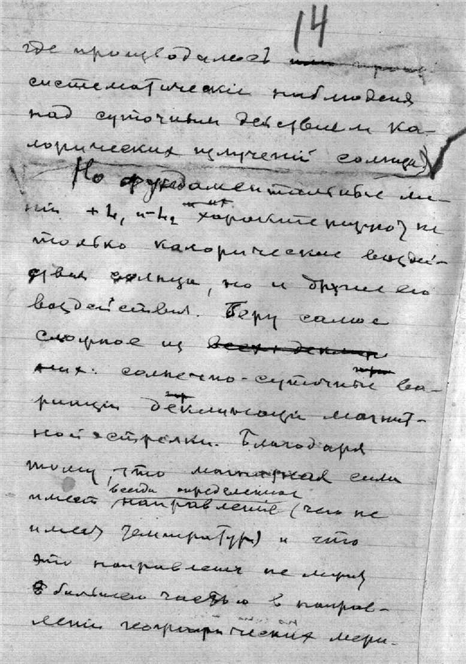 14
где производилось
систематическiя наблюденiя
над суточным действием ка-
лорических излученiй солнца)
Но фундаментальные ли-
нiи +h, и -h₂ характеризуют не
только калорические воздей-
ствия солнца, но и другие его
воздействия. Беру самое
сложное из
них: солнечно-суточные ва-
рияции деклинации магнит-
ной стрелки. Благодаря
тому, что магнитная сила
всегда определенное
имеет направление (чего не
имеет температура) и что
это направление не
большею частью в направ-
лении географических мери-